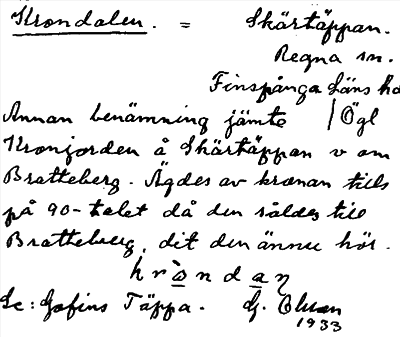 Krondalen. = Skärtäppan.
Regna sn.
Finspånga läns hd
Annan benämning jämte / Ögl
Kronjorden å Skärtäppan v om
Bratteberg. Ägdes av kronan tills
på 90-talet då den såldes till
Bratteberg, dit den ännu hör.
Se: Täppa. G.
1933